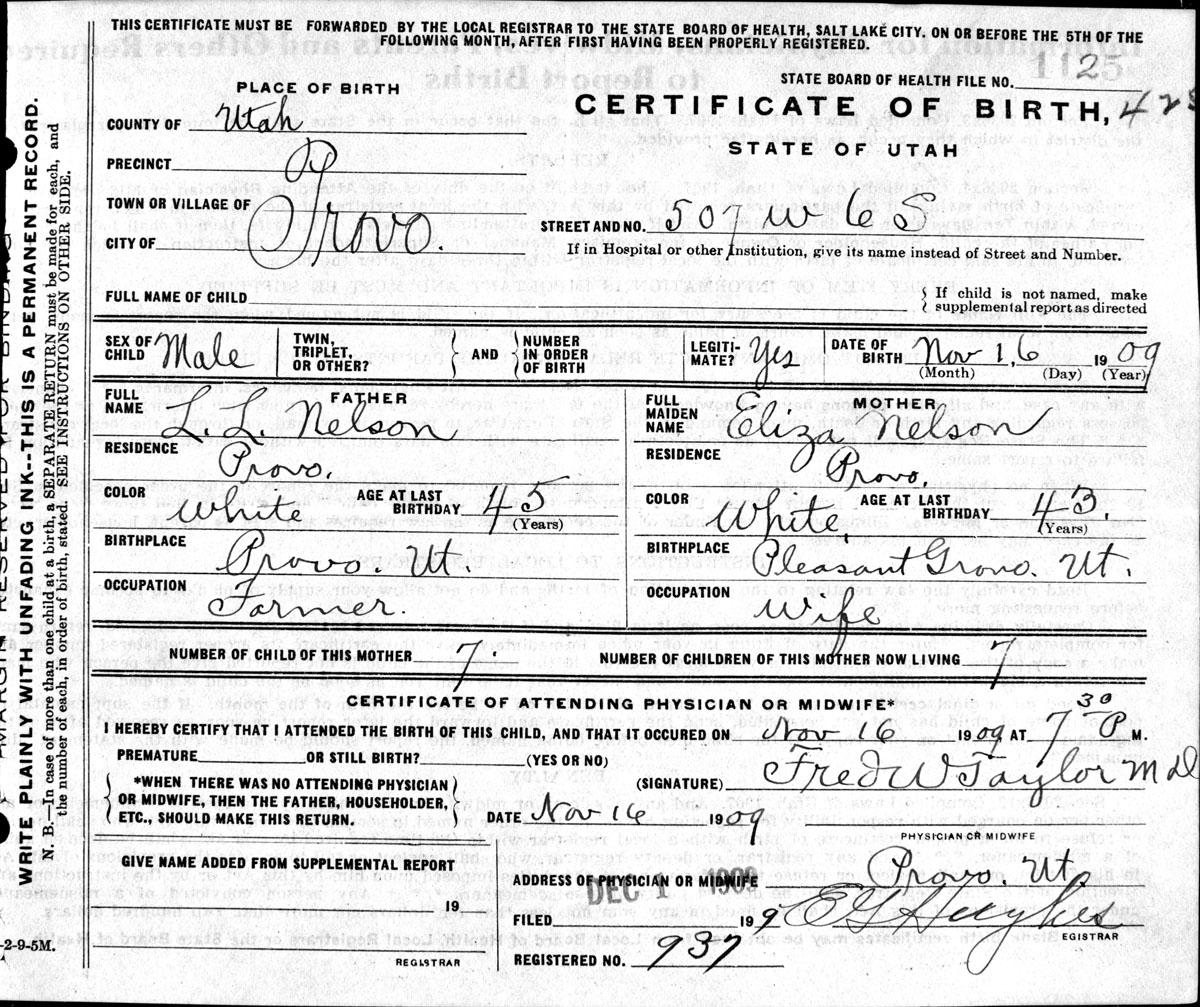 THIS CERTIFICATE MUST BE FORWARDED BY THE LOCAL REGISTRAR TO THE STATE BOARD OF HEALTH, SALT LAKE CITY. ON OR BEFORE THE 5TH OF THE
FOLLOWING MONTH, AFTER FIRST HAVING BEEN PROPERLY REGISTERED.
WRITE PLAINLY WITH UNFADING INK--THIS IS A PERMANENT RECORD.
N. B.—In case of more than one child at a birth, a SEPARATE RETURN must be made for each, and
the number of each, in order of birth, stated. SEE INSTRUCTIONS ON OTHER SIDE.
PLACE OF BIRTH
STATE BOARD OF HEALTH FILE NO. 1125
COUNTY OF Utah
CERTIFICATE OF BIRTH, 428
PRECINCT
STATE OF UTAH
TOWN OR VILLAGE OF
CITY OF Provo
STREET AND NO. 507 W 6 S
If in Hospital or other Institution, give its name instead of Street and Number.
FULL NAME OF CHILD
} If child is not named, make
supplemental report as directed
SEX OF CHILD Male TWIN, TRIPLET, OR OTHER? } AND { NUMBER IN ORDER OF BIRTH LEGITI-MATE? Yes DATE OF BIRTH Nov 16, 1909
(Month) (Day) (Year)
FATHER
FULL NAME L. L. Nelson
RESIDENCE Provo.
COLOR White AGE AT LAST BIRTHDAY 45 (Years)
BIRTHPLACE Provo Ut.
OCCUPATION Farmer.
MOTHER
FULL MAIDEN NAME Eliza Nelson
RESIDENCE Provo,
COLOR White AGE AT LAST BIRTHDAY 43. (Years)
BIRTHPLACE Pleasant Grove. Ut.
OCCUPATION Wife
NUMBER OF CHILD OF THIS MOTHER 7 NUMBER OF CHILDREN OF THIS MOTHER NOW LIVING 7
CERTIFICATE OF ATTENDING PHYSICIAN OR MIDWIFE*
I HEREBY CERTIFY THAT I ATTENDED THE BIRTH OF THIS CHILD, AND THAT IT OCCURED ON Nov 16 1909 AT 7 30 P M.
PREMATURE OR STILL BIRTH? (YES OR NO)
(SIGNATURE) Fred W Taylor Md
{ *WHEN THERE WAS NO ATTENDING PHYSICIAN
OR MIDWIFE, THEN THE FATHER, HOUSEHOLDER,
ETC., SHOULD MAKE THIS RETURN. }
DATE Nov 16 1909
PHYSICIAN OR MIDWIFE
GIVE NAME ADDED FROM SUPPLEMENTAL REPORT
19
REGISTRAR
ADDRESS OF PHYSICIAN OR MIDWIFE Provo. Ut
DEC 1 1909
FILED 1909
REGISTRAR
REGISTERED NO. 937
-2-9-5M.